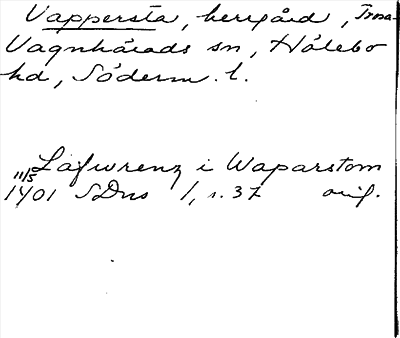 Vappersta, herrgård, Trosa-
Vagnhärads sn, Hölebo
hd, Söderm. l.
Lafwrenz i Waparstom
11/5 1401 SDns 1, s. 37 orig.